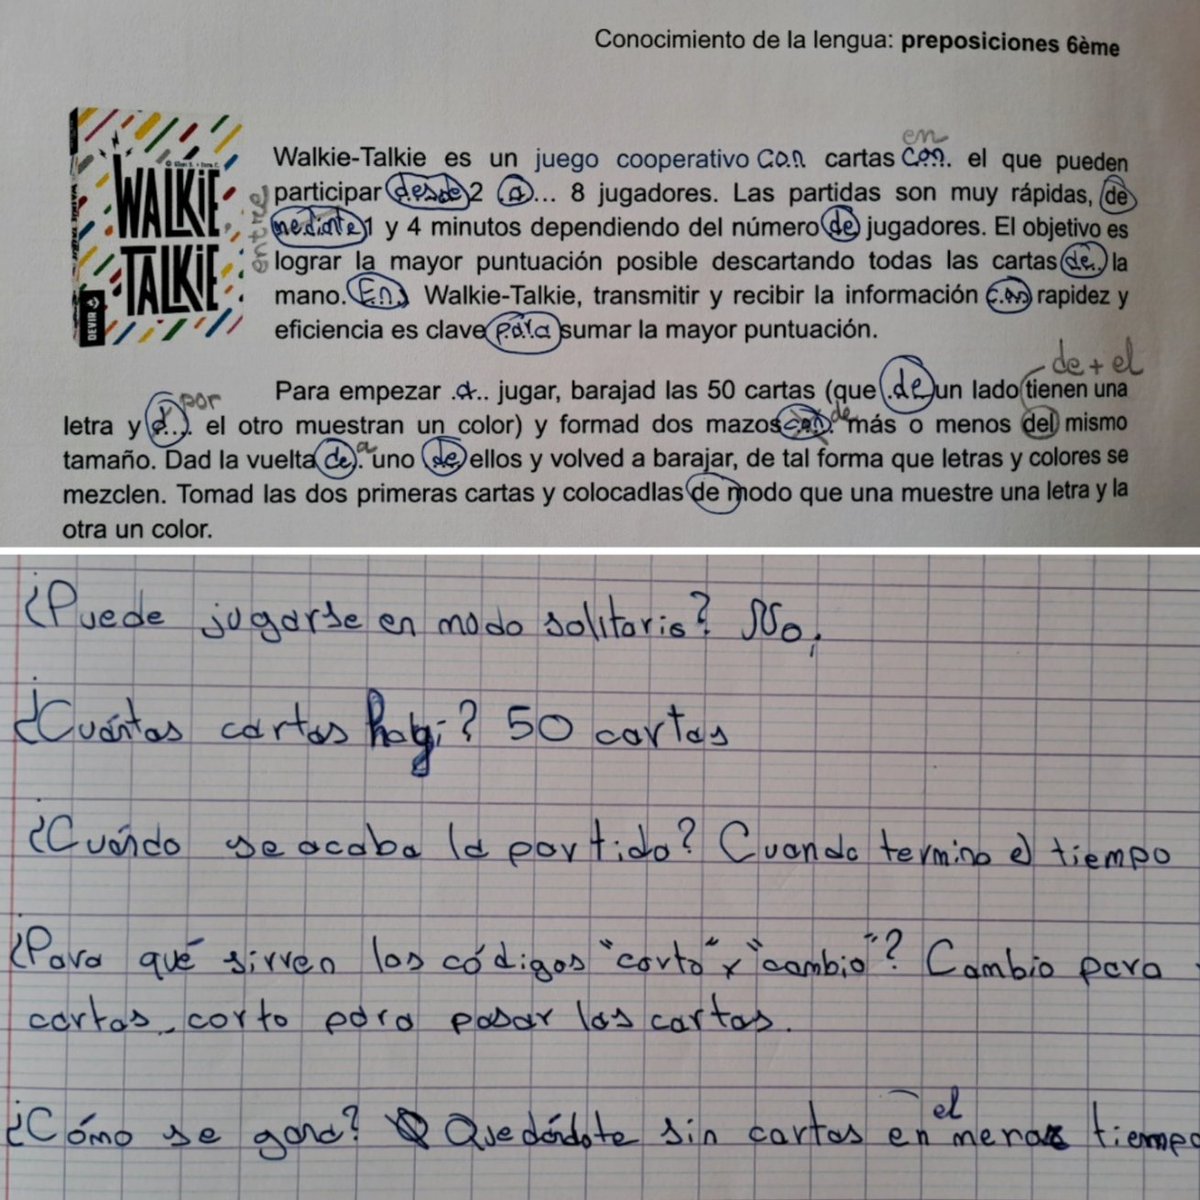 Conocimiento de la lengua: preposiciones 6ème
WALKIE
TALKIE
DEVIR
en
Walkie-Talkie es un juego cooperativo con cartas con. el que pueden
participar desde 2 a... 8 jugadores. Las partidas son muy rápidas, de
entre
mediate 1 y 4 minutos dependiendo del número de jugadores. El objetivo es
lograr la mayor puntuación posible descartando todas las cartas de. la
mano. En. Walkie-Talkie, transmitir y recibir la información con rapidez y
eficiencia es clave para sumar la mayor puntuación.
de + el
Para empezar .a.. jugar, barajad las 50 cartas (que .de un lado tienen una
por
letra y a... el otro muestran un color) y formad dos mazos con. de más o menos del mismo
tamaño. Dad la vuelta de. a uno de ellos y volved a barajar, de tal forma que letras y colores se
mezclen. Tomad las dos primeras cartas y colocadlas de modo que una muestre una letra y la
otra un color.
¿Puede jugarse en modo solitario? No.
¿Cuántas cartas hay? 50 cartas
¿Cuándo se acaba la partida? Cuando termina el tiempo
¿Para qué sirven los códigos "corto" y "cambio"? Cambio para
cartas, corto para pasar las cartas.
¿Cómo se gana? Quedándote sin cartas en el menor tiempo